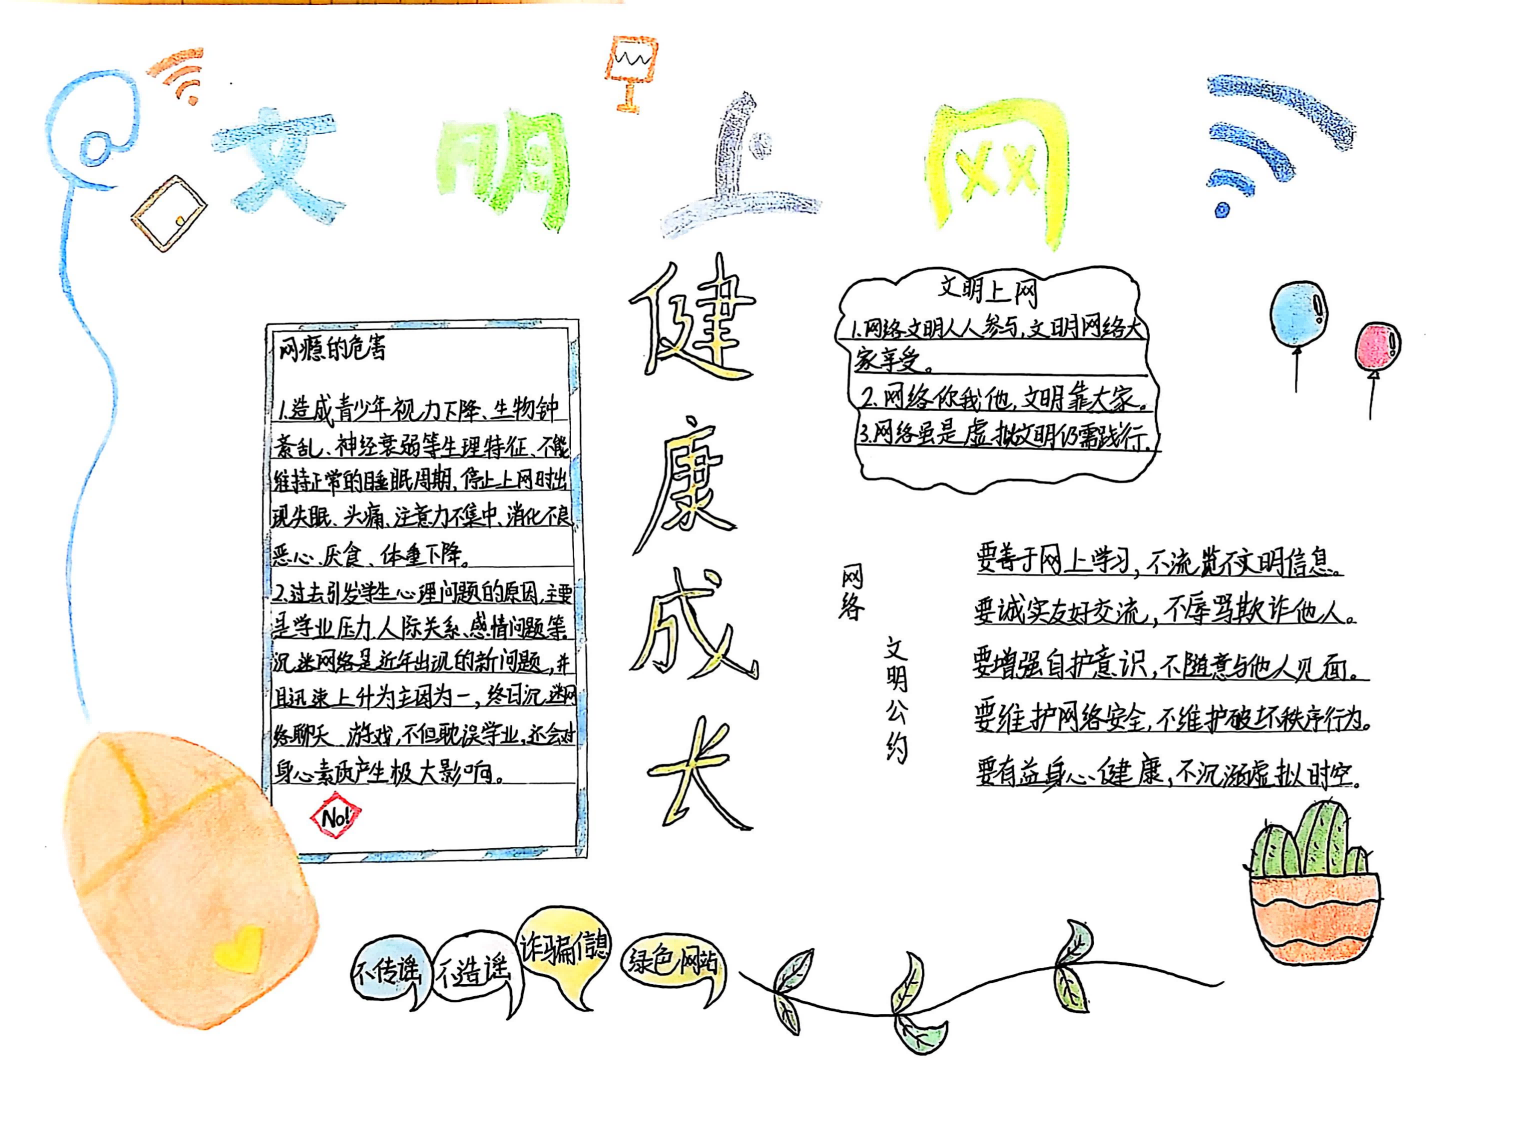 文明上网
健康成长
网瘾的危害
1.造成青少年视力下降、生物钟
紊乱、神经衰弱等生理特征、不能
维持正常的睡眠周期,停止上网时出
现失眠、头痛、注意力不集中、消化不良
恶心、厌食、体重下降。
2.过去引发学生心理问题的原因,主要
是学业压力、人际关系、感情问题等
沉迷网络是近年出现的新问题,并
且迅速上升为主因为一,终日沉迷网
络聊天 游戏,不但耽误学业,还会对
身心素质产生极大影响。
No!
文明上网
1.网络文明人人参与,文明网络大
家享受。
2.网络你我他,文明靠大家。
3.网络虽是虚拟文明仍需践行.
网络
文明公约
要善于网上学习,不流览不文明信息。
要诚实友好交流,不辱骂欺诈他人。
要增强自护意识,不随意与他人见面。
要维护网络安全,不维护破坏秩序行为。
要有益身心健康,不沉溺虚拟时空。
不传谣
不造谣
诈骗信息
绿色网站